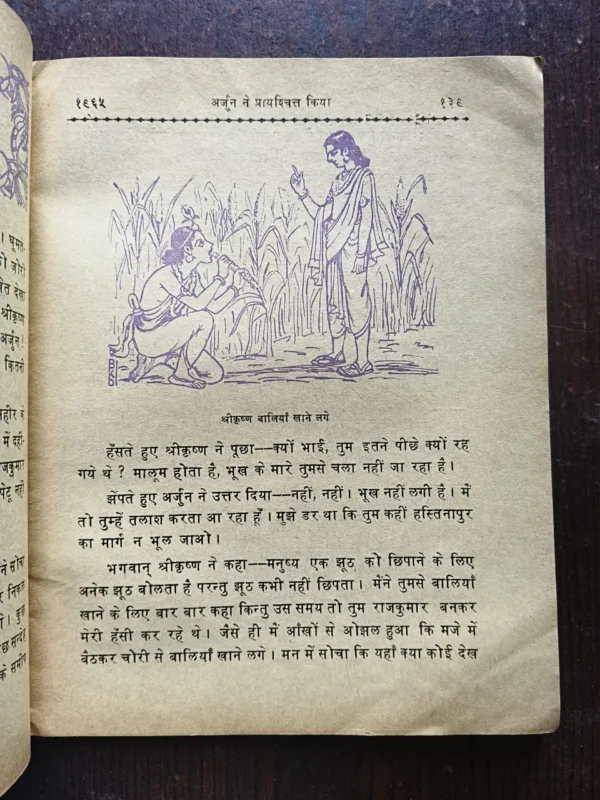 । घूमते-
को जोरों
खेत देखा
श्रीकृष्ण
अर्जुन !
कितनी
में दही-
राजकुमार
पेटू नहीं
ने सोचा
निकल
। कुछ
के समीप
१९६५ अर्जुन ने प्रायश्चित्त किया १३९
श्रीकृष्ण बालियाँ खाने लगे
हँसते हुए श्रीकृष्ण ने पूछा--क्यों भाई, तुम इतने पीछे क्यों रह
गये थे ? मालूम होता है, भूख के मारे तुमसे चला नहीं जा रहा है ।
झेंपते हुए अर्जुन ने उत्तर दिया--नहीं, नहीं । भूख नहीं लगी है । मैं
तो तुम्हें तलाश करता आ रहा हूँ । मुझे डर था कि तुम कहीं हस्तिनापुर
का मार्ग न भूल जाओ ।
भगवान् श्रीकृष्ण ने कहा--मनुष्य एक झूठ को छिपाने के लिए
अनेक झूठ बोलता है परन्तु झूठ कभी नहीं छिपता । मैंने तुमसे बालियाँ
खाने के लिए बार बार कहा किन्तु उस समय तो तुम राजकुमार बनकर
मेरी हँसी कर रहे थे । जैसे ही मैं आँखों से ओझल हुआ कि मजे में
बैठकर चोरी से बालियाँ खाने लगे । मन में सोचा कि यहाँ क्या कोई देख